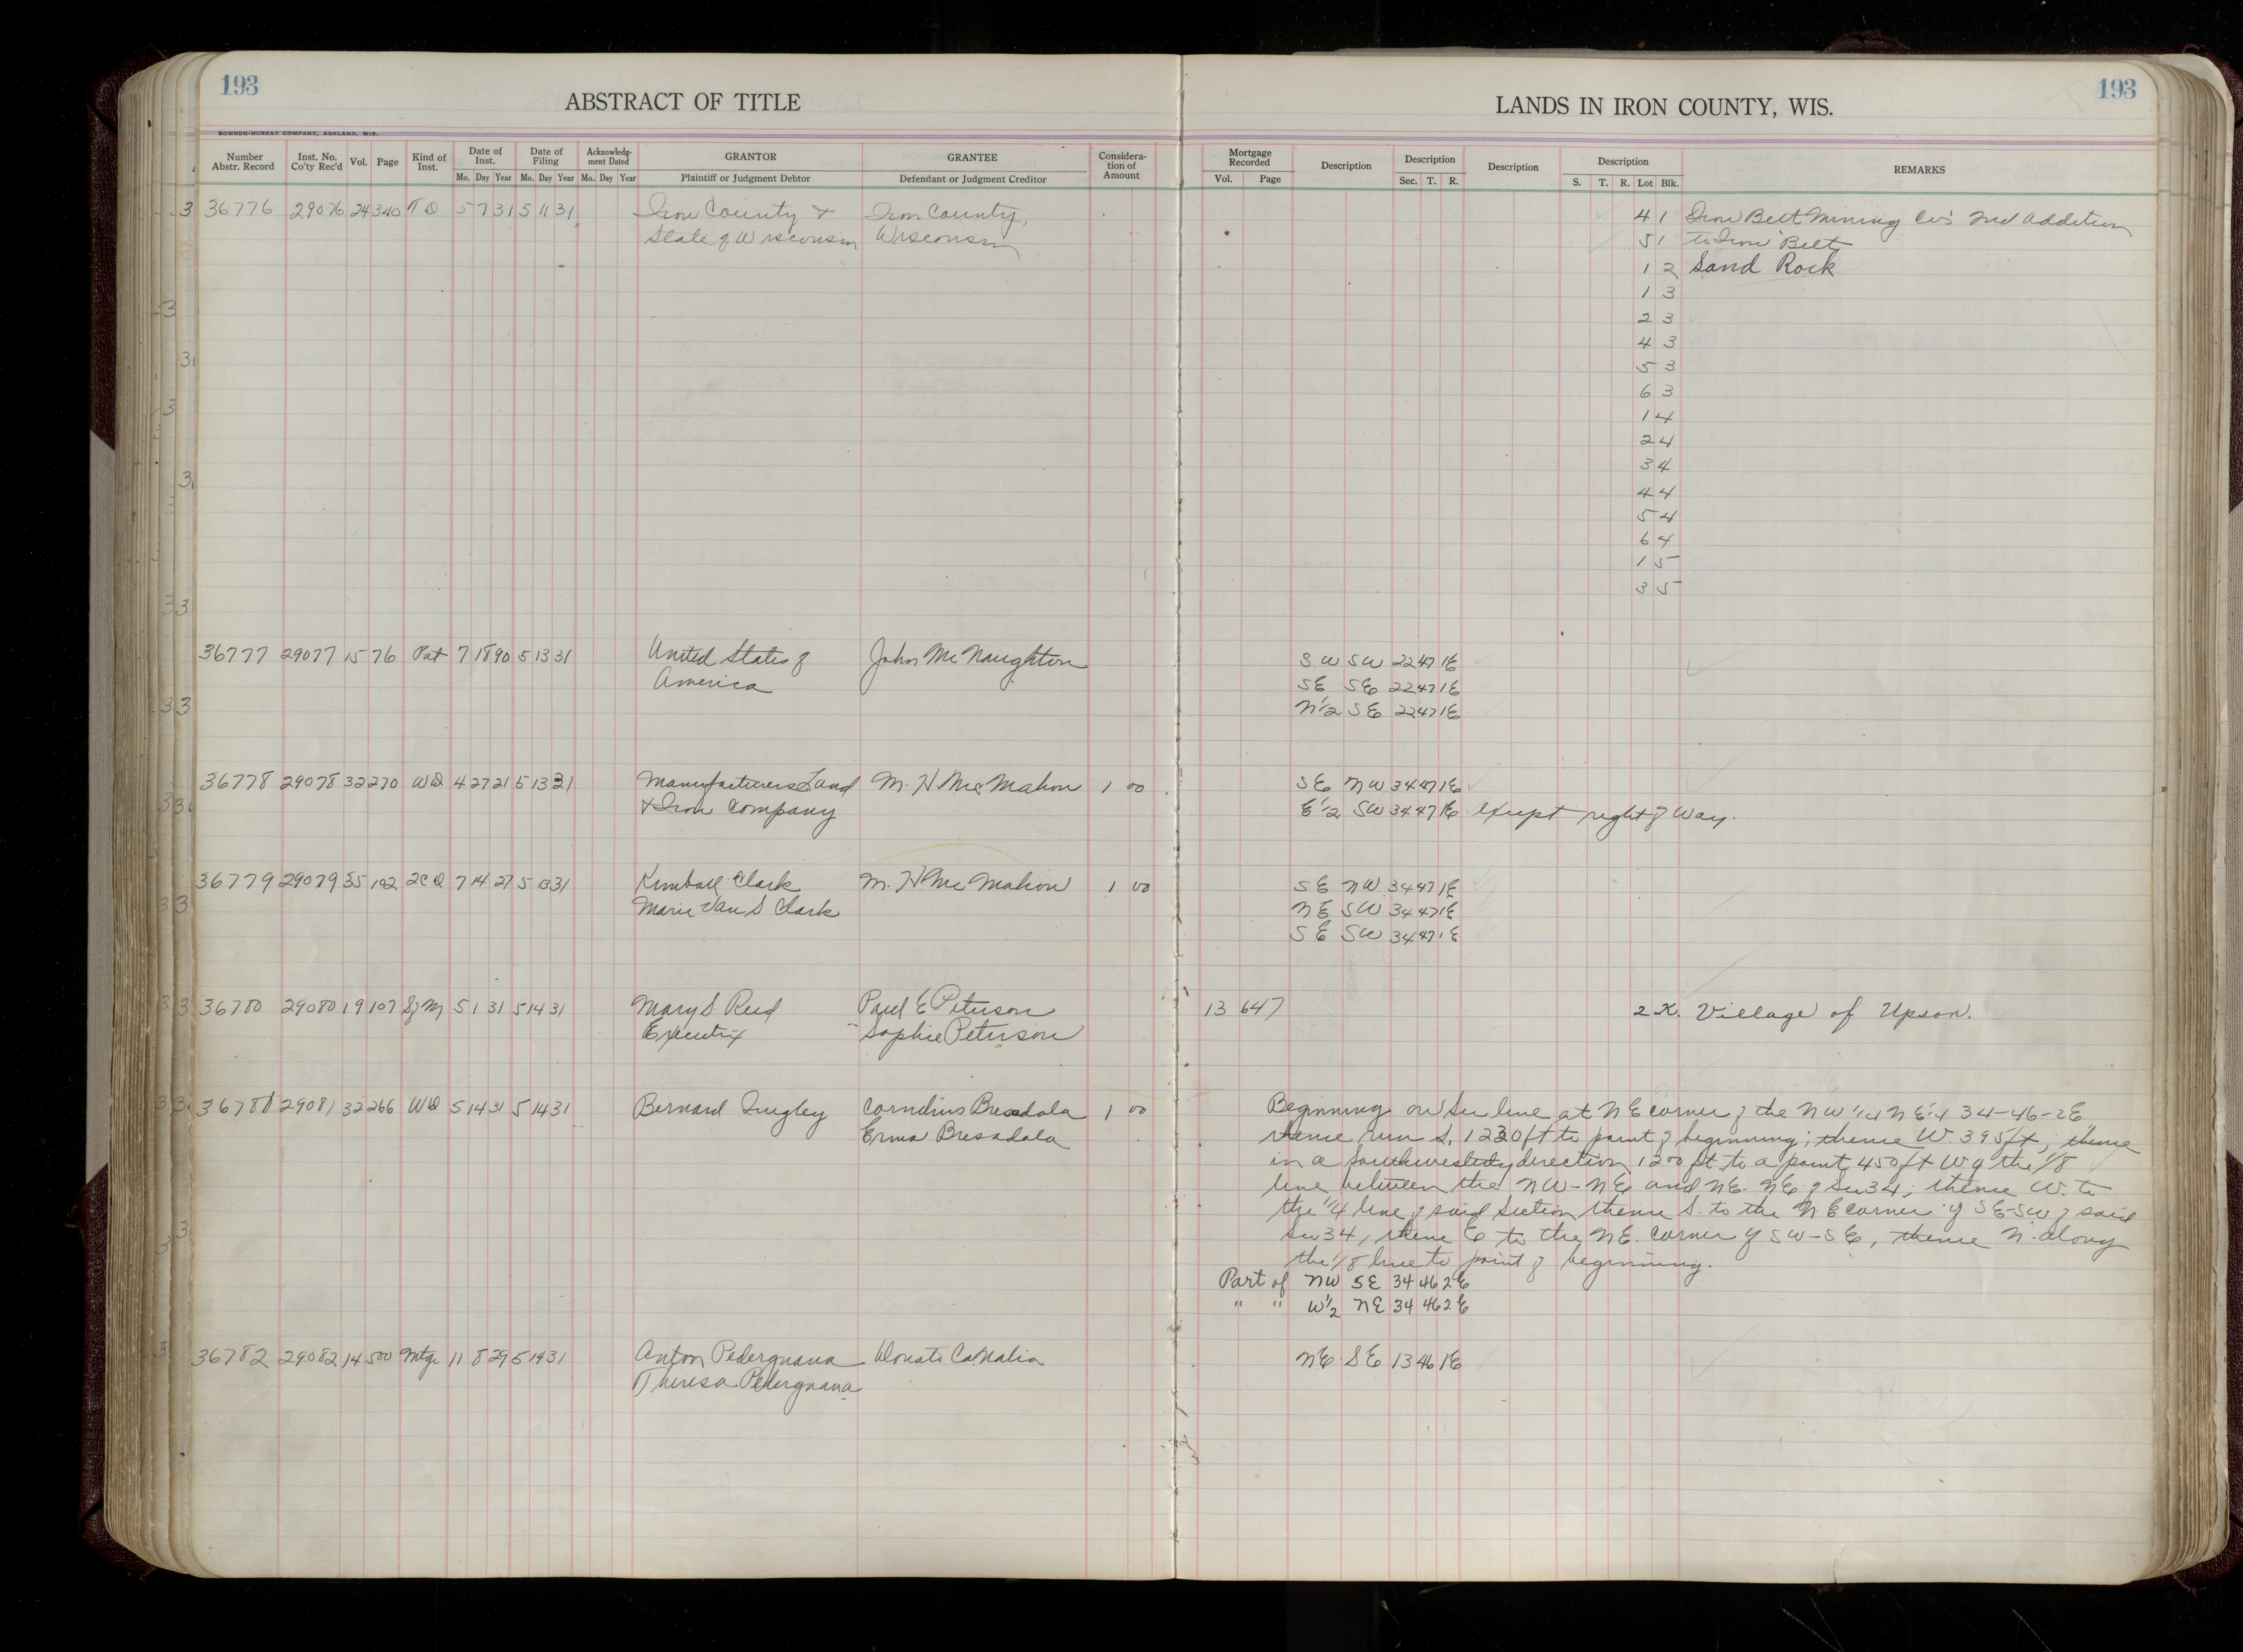 193
193
ABSTRACT OF TITLE
LANDS IN IRON COUNTY, WIS.
BOWRON-MURRAY COMPANY, ASHLAND, WIS.
Number Abstr. Record Inst. No. Co'ty Rec'd Vol. Page Kind of Inst. Date of Inst. Date of Filing Acknowledgment Dated GRANTOR GRANTEE Consideration of Amount Mortgage Recorded Description Description Description Description REMARKS
Mo. Day Year Mo. Day Year Mo. Day Year Plaintiff or Judgment Debtor Defendant or Judgment Creditor Vol. Page Sec. T. R. S. T. R. Lot Blk.
36776 29076 24 340 T D 5 7 31 5 11 31 Iron County & Iron County, 4 1 Iron Belt Mining Co's 2nd Addition
State of Wisconsin Wisconsin 5 1 to Iron Belt
1 2 Sand Rock
1 3
2 3
4 3
5 3
6 3
1 4
2 4
3 4
4 4
5 4
6 4
1 5
3 5
36777 29077 15 76 Pat 7 18 90 5 13 31 United States of John McNaughton SW SW 22 47 1E
America SE SE 22 47 1E
N1/2 SE 22 47 1E
36778 29078 32 270 WD 4 27 21 5 13 31 Manufacturers Land M. H McMahon 1 00 SE NW 34 47 1E
& Iron Company E1/2 SW 34 47 1E except right of way.
36779 29079 35 192 2CD 7 14 27 5 13 31 Kimball Clark M. H McMahon 1 00 SE NW 34 47 1E
Marie Van S Clark NE SW 34 47 1E
SE SW 34 47 1E
36780 29080 19 107 SfM 5 1 31 5 14 31 Mary S Reed Paul E Peterson 13 647 2 K. Village of Upson.
Executrix Sophie Peterson
36781 29081 32 266 WD 5 14 31 5 14 31 Bernard Quigley Cornelius Bresadola 1 00 Beginning on Sec line at NE corner of the NW 1/4 NE 1/4 34-46-2E
Erma Bresadola thence run S. 1220 ft to point of beginning; thence W. 395 ft, thence
in a Southwesterly direction 1200 ft to a point 450 ft W of the 1/8
line between the NW-NE and NE-NE of Sec 34; thence W. to
the 1/4 line of said Section thence S. to the NE corner of SE-SW of said
Sec 34, thence E to the NE. corner of SW-SE, thence N. along
the 1/8 line to point of beginning.
Part of NW SE 34 46 2E
" " W1/2 NE 34 46 2E
36782 29082 14 500 Mtge 11 8 29 5 14 31 Anton Pedergnana Donato NE SE 13 46 1E
Theresa Pedergnana